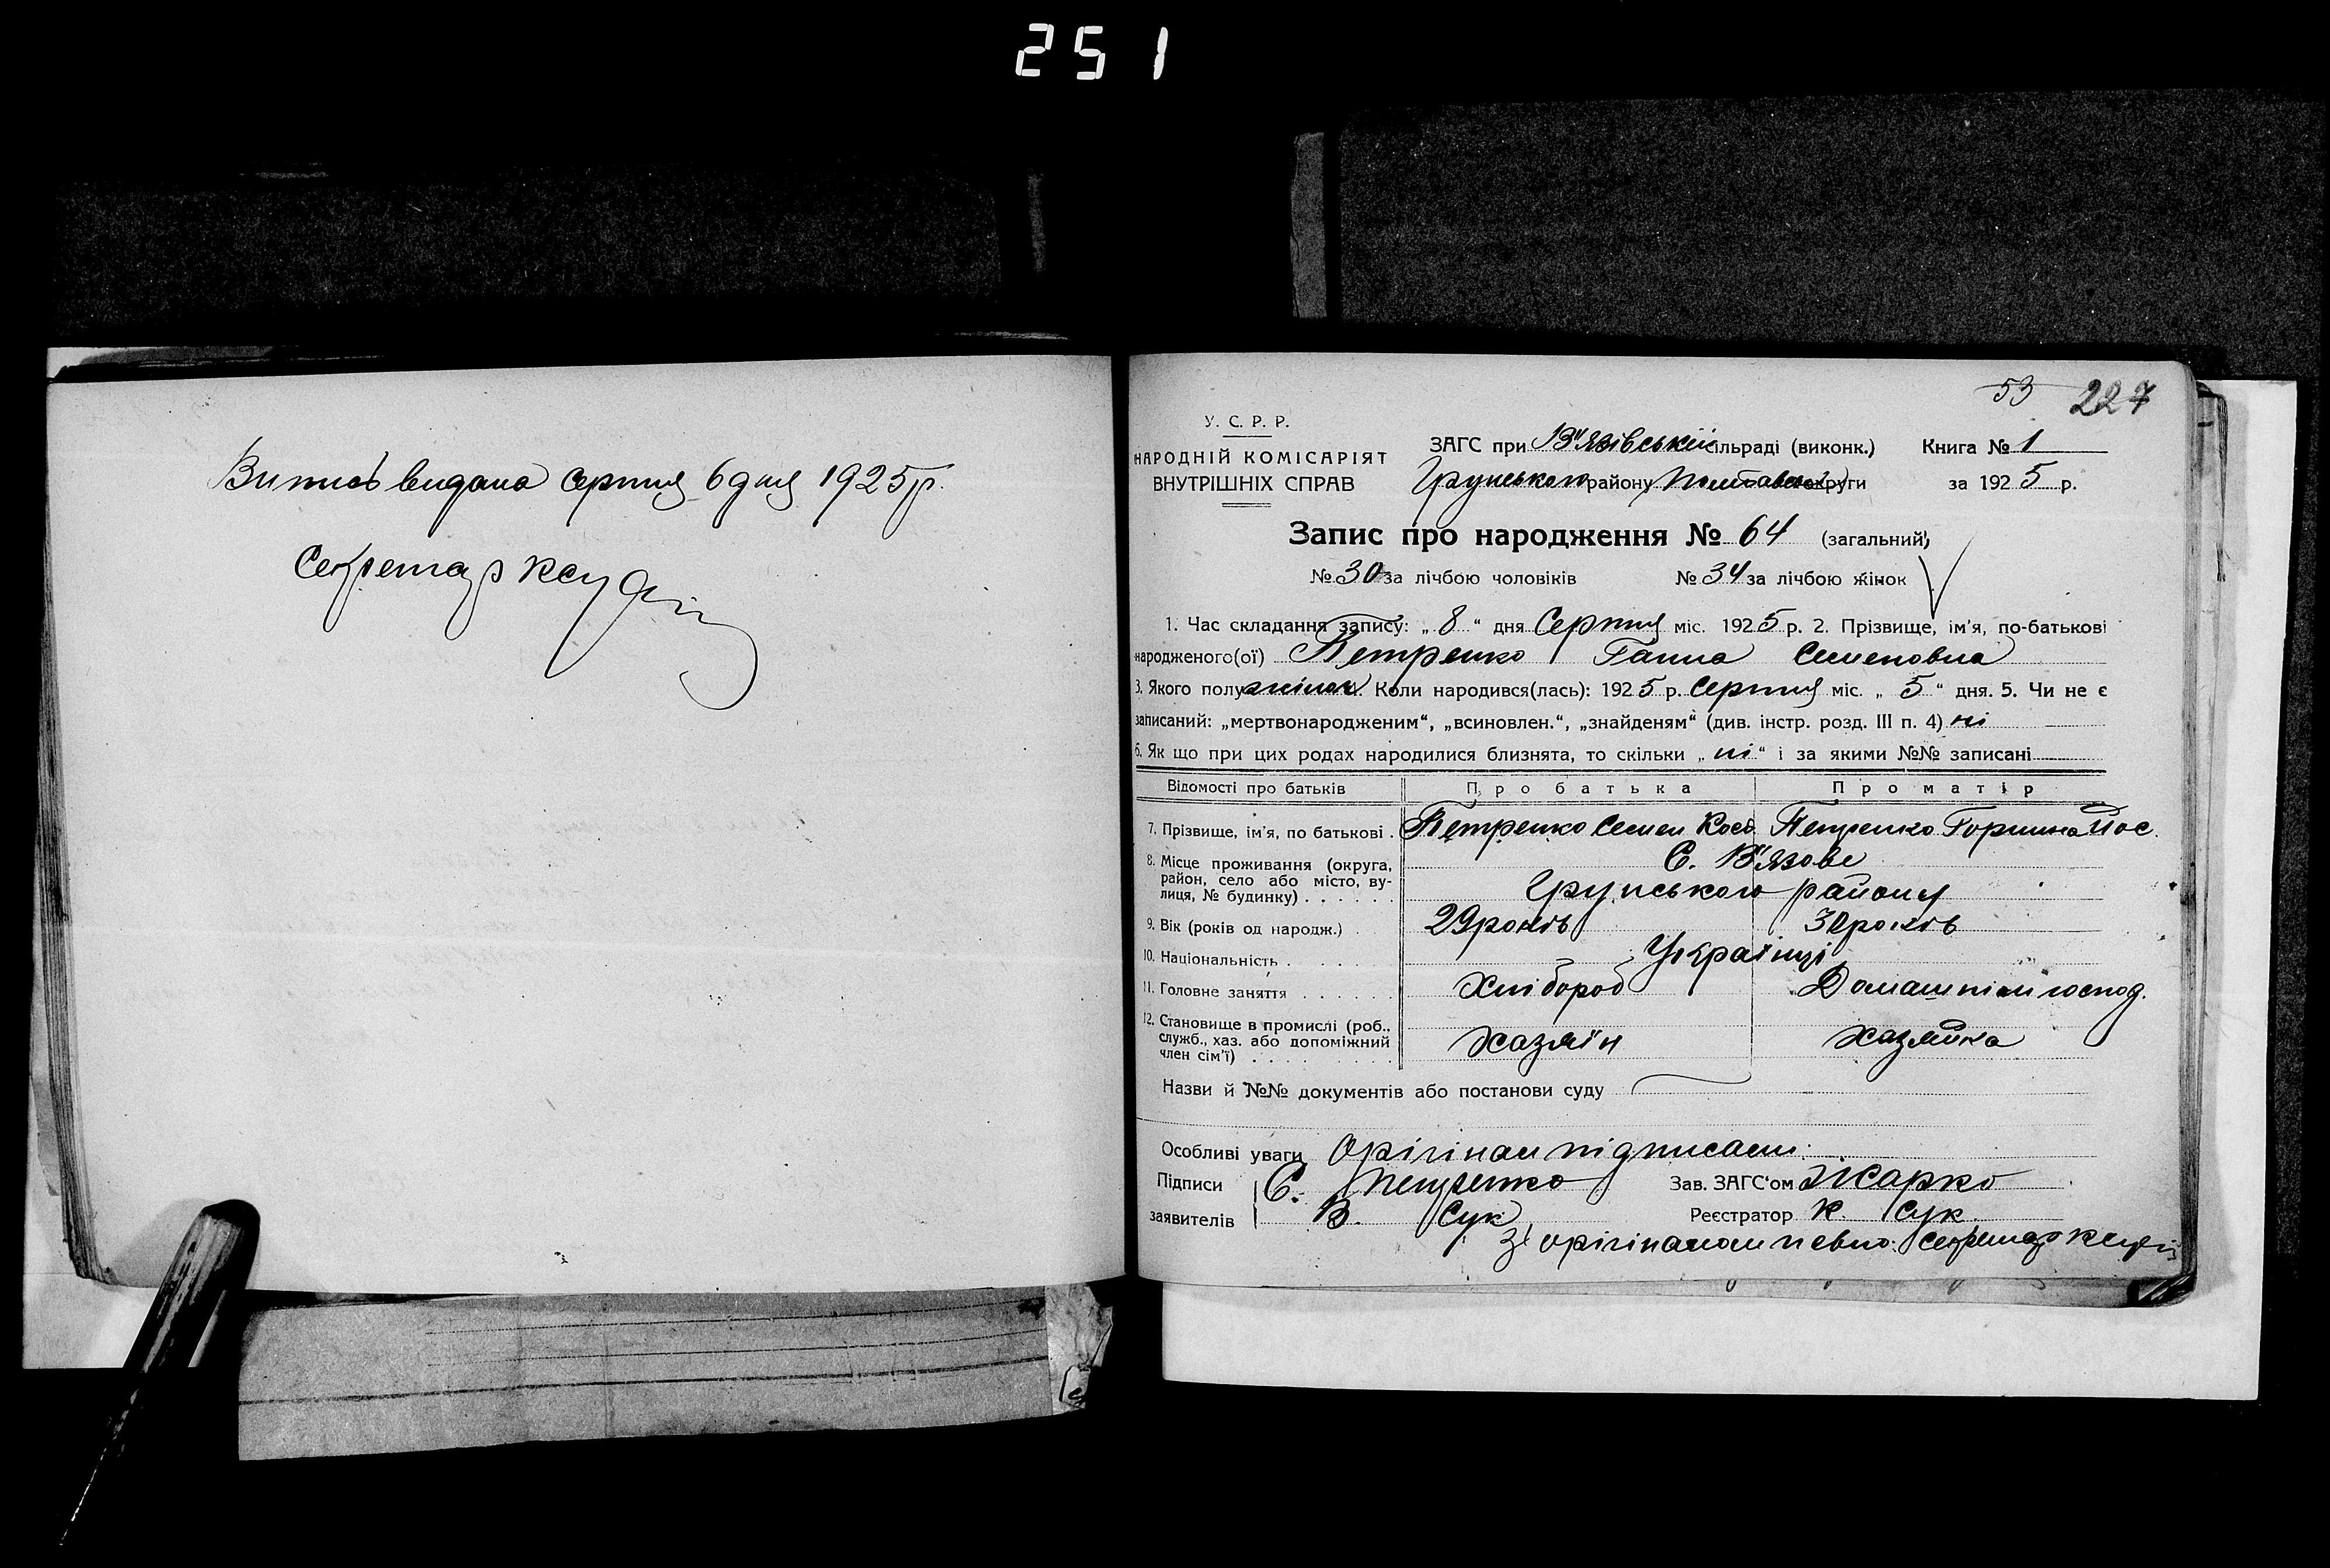 251
Випись видана серпня 6 дня 1925 р.
Секретар
53 227
У. С. Р. Р.
НАРОДНІЙ КОМІСАРІЯТ
ВНУТРІШНІХ СПРАВ
ЗАГС при В"язівській сільраді (виконк.) Книга № 1
Грунського району Полтавськ округи за 1925 р.
Запис про народження № 64 (загальний)
№ 30 за лічбою чоловіків № 34 за лічбою жінок
1. Час складання запису: „8“ дня Серпня міс. 1925 р. 2. Прізвище, ім’я, по-батькові
народженого(ої) Петренко Ганна Семеновна
3. Якого полу жіноч. Коли народився(лась): 1925 р. Серпня міс. „5“ дня. 5. Чи не є
записаний: „мертвонародженим“, „всиновлен.“, „знайденям“ (див. інстр. розд. III п. 4) ні
6. Як що при цих родах народилися близнята, то скільки „ні“ і за якими №№ записані
Відомості про батьків Про батька Про матір
7. Прізвище, ім’я, по батькові . Петренко Семен Кость Петренко Горпина Йос.
8. Місце проживання (округа, район, село або місто, вулиця, № будинку) . . . . . . С. В"язове
Грунського району
9. Вік (років од народж.) . 29 років 30 років
10. Національність . . . . . Українці
11. Головне заняття . . . . . . Хлібороб Домашнім господ.
12. Становище в промислі (роб., служб., хаз. або допоміжний член сім’ї) . . . . . . . Хазяїн Хазяйка
Назви й №№ документів або постанови суду
Особливі уваги Орігінал підписали:
Підписи С. Петренко Зав. ЗАГС‘ом Жарко
заявителів В. Сук Реєстратор К. Сук
Зі орігіналом певно: Секретар